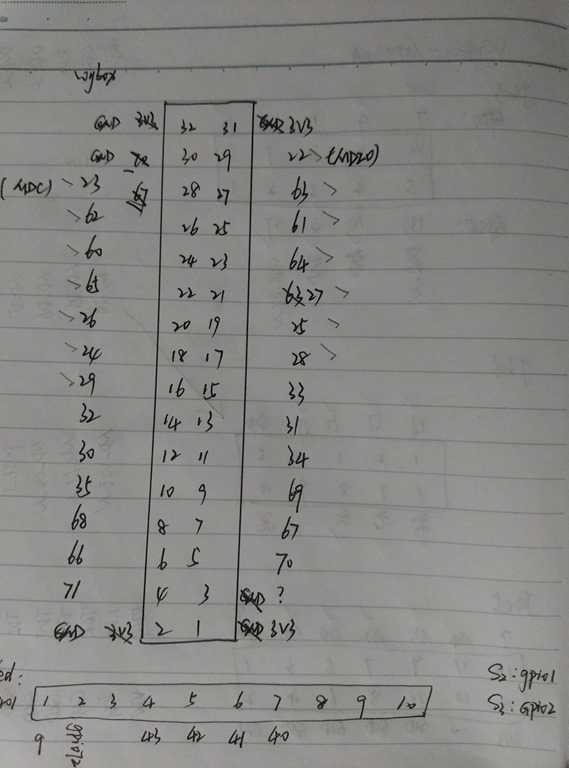 GND 3V3 32 31 GND 3V3
GND 30 29 22 > (MDIO)
(MDC) > 23 67 28 27 63 >
> 62 26 25 61 >
> 60 24 23 64 >
> 65 22 21 63 27 >
> 26 20 19 25 >
> 24 18 17 28 >
> 29 16 15 33
32 14 13 31
30 12 11 34
35 10 9 69
68 8 7 67
66 6 5 70
71 4 3 GND ?
GND 3V3 2 1 GND 3V3
S2: gpio1
1 2 3 4 5 6 7 8 9 10 S3: GPIO2
9 gpio2 43 42 41 40